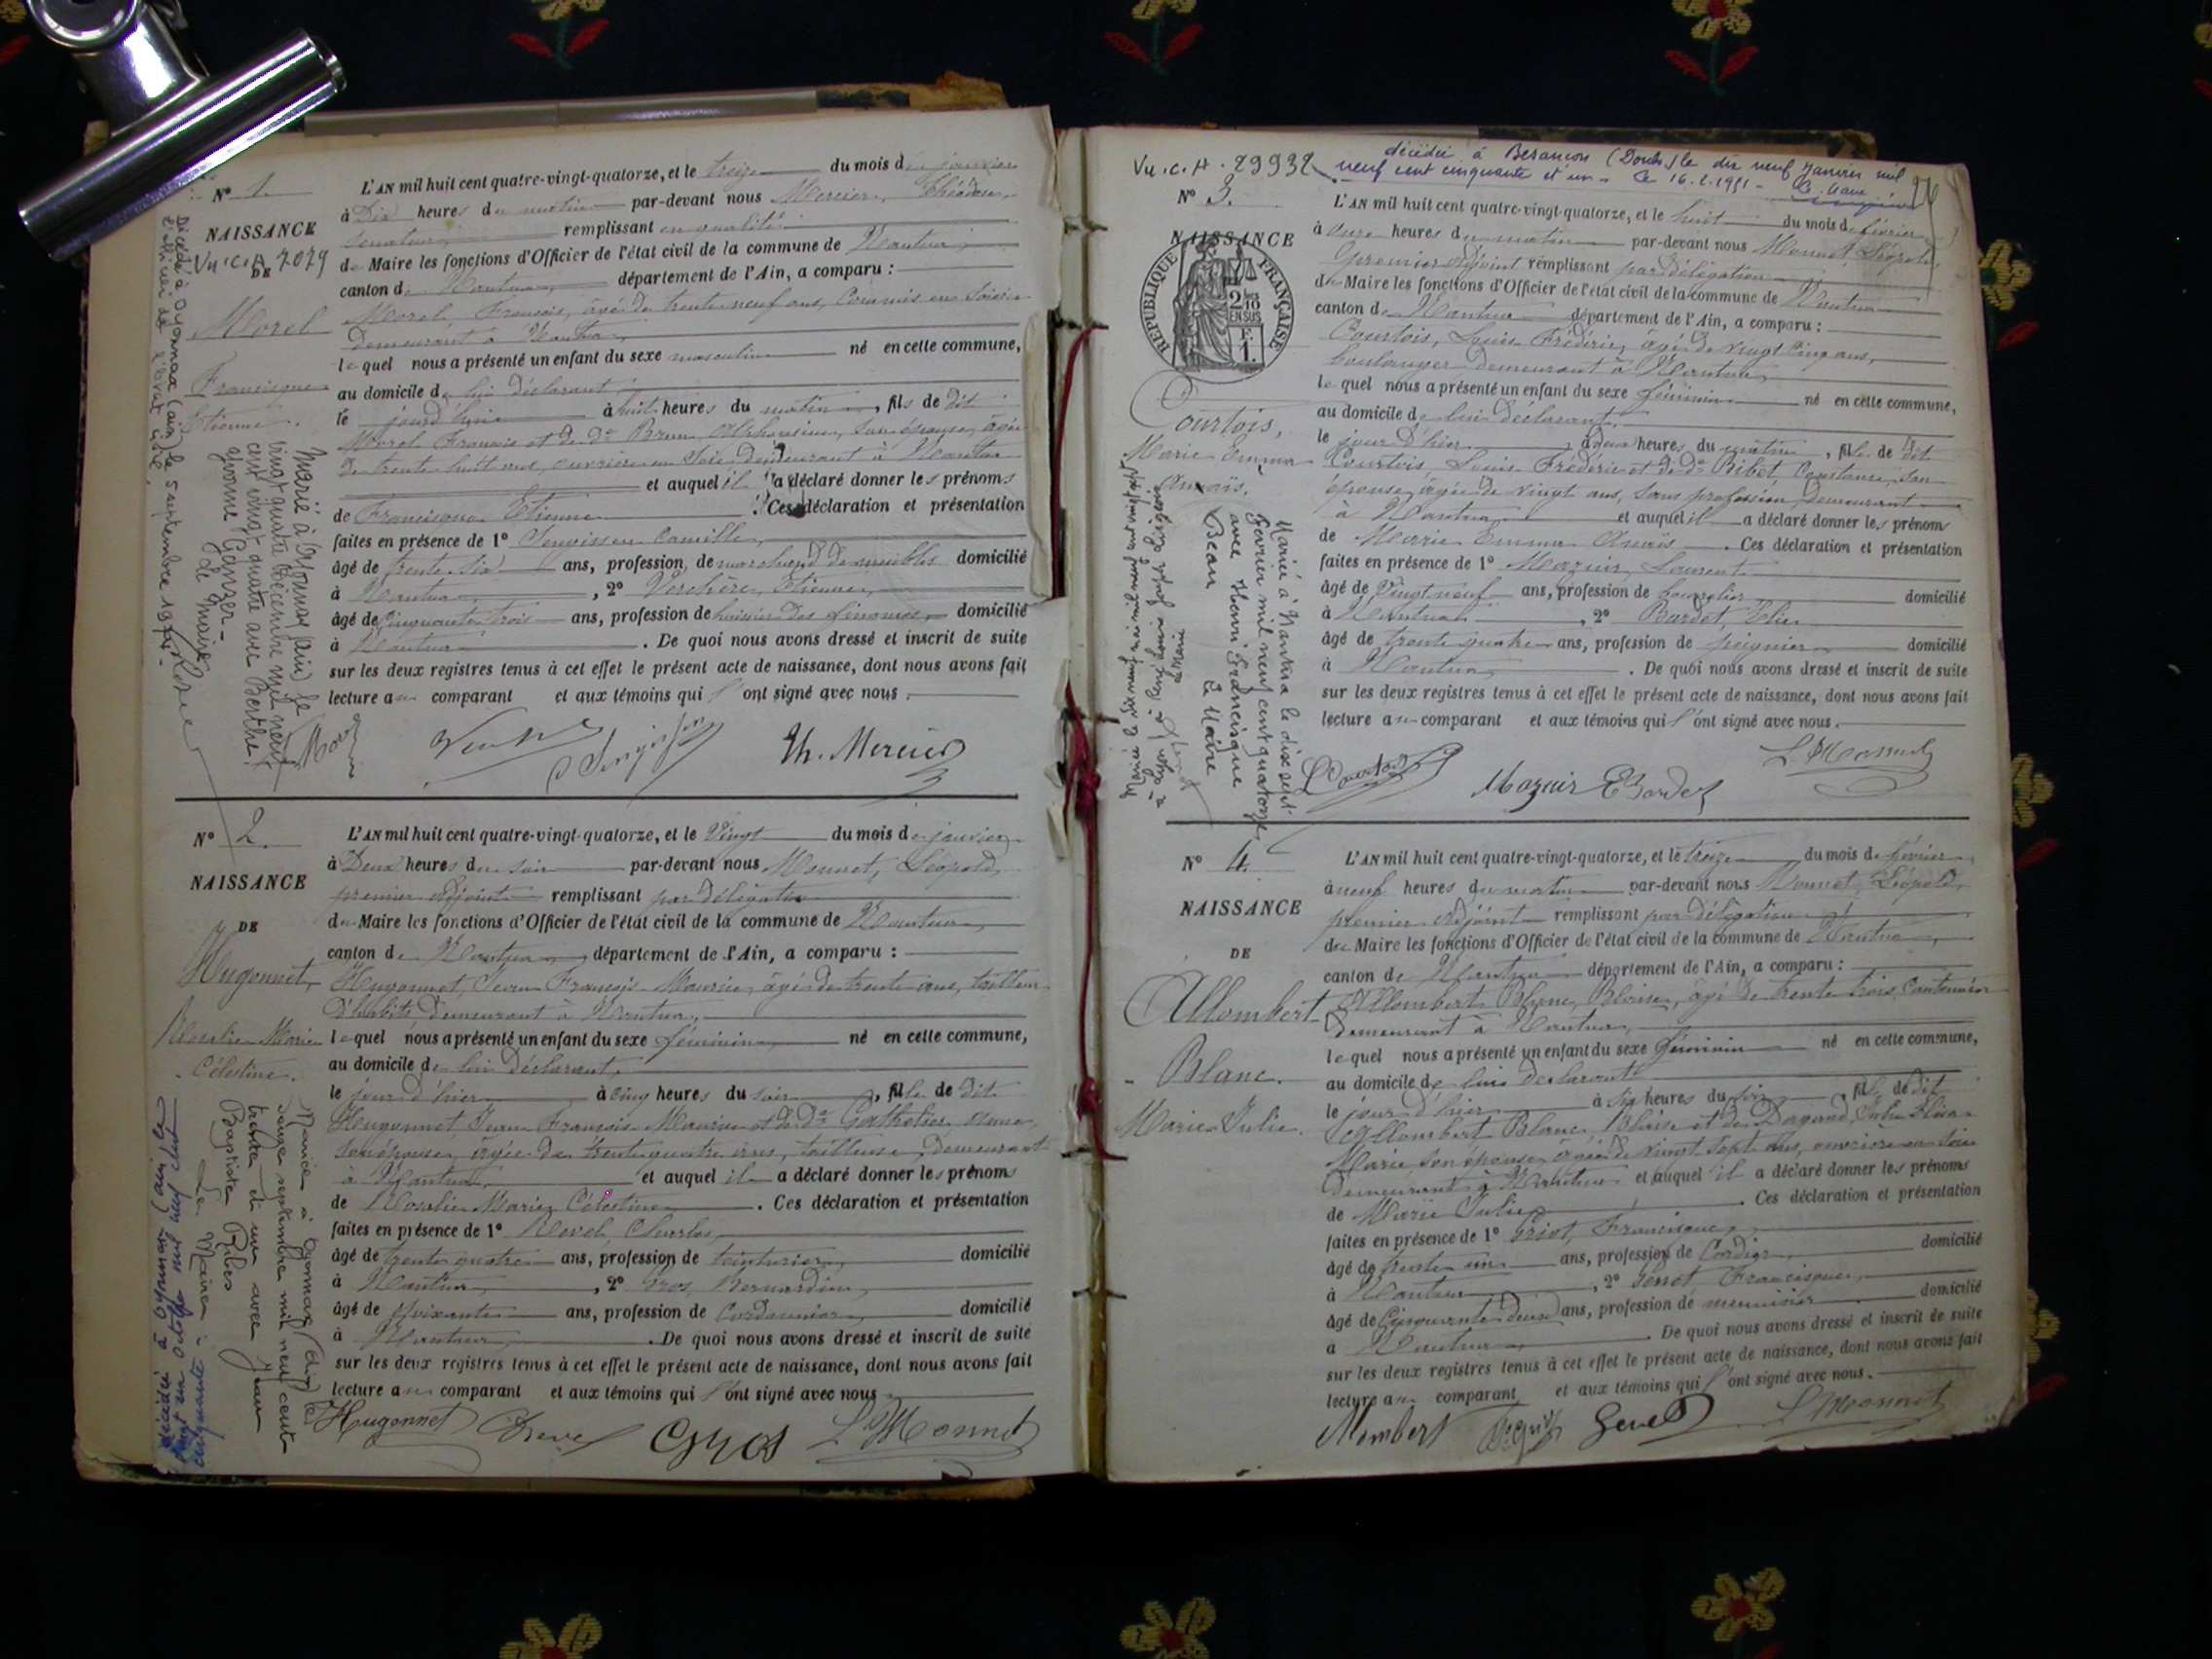 N° 1.
NAISSANCE
DE
Vu. C. A 7079
Morel
Francisque
Etienne.
L'AN mil huit cent quatre-vingt-quatorze, et le treize du mois de janvier
à Dix heures du matin par-devant nous Mercier, Théodore,
senateur, remplissant en qualité
de Maire les fonctions d'Officier de l'état civil de la commune de Nantua,
canton de Nantua, département de l'Ain, a comparu :
Morel François, âgé de trente neuf ans, Commis en Soierie
demeurant à Nantua,
lequel nous a présenté un enfant du sexe masculin né en cette commune,
au domicile de lui déclarant,
le jourd'hui à huit heures du matin, fils de dit
Morel François et de de Brun Alphonsine, son épouse, âgée
de trente huit ans, ouvrière en Soie, demeurant à Nantua
et auquel il a déclaré donner les prénoms
de Francisque Etienne. Ces déclaration et présentation
faites en présence de 1° Camille,
âgé de trente six ans, profession de marchand de meubles domicilié
à Nantua, 2° Verchère, Etienne,
âgé de cinquante trois ans, profession de huissier des finances, domicilié
à Nantua. De quoi nous avons dressé et inscrit de suite
sur les deux registres tenus à cet effet le présent acte de naissance, dont nous avons fait
lecture au comparant et aux témoins qui l'ont signé avec nous.
Th. Mercier
Marié à Oyonnax (Ain) le
vingt quatre décembre mil neuf
cent vingt quatre avec Berthe
Yvonne Ganzer -
Le maire
Décédé à Oyonnax (ain) le 5 septembre 1974-
l'officier de l'état civil,
N° 2.
NAISSANCE
DE
Hugonnet,
Roselie Marie
Célestine.
L'AN mil huit cent quatre-vingt-quatorze, et le Vingt du mois de janvier
à Deux heures du soir par-devant nous Monnet, Léopold,
premier adjoint remplissant par délégation
du Maire les fonctions d'Officier de l'état civil de la commune de Nantua,
canton de Nantua, département de l'Ain, a comparu :
Hugonnet, Jean François Maurice, âgé de trente ans, tailleur
d'habits demeurant à Nantua,
lequel nous a présenté un enfant du sexe féminin, né en cette commune,
au domicile de lui déclarant,
le jour d'hier à cinq heures du soir, fille de dit
Hugonnet Jean François Maurice et de de
son épouse, âgée de trente quatre ans, tailleuse, demeurant
à Nantua, et auquel il a déclaré donner les prénoms
de Roselie Marie Célestine. Ces déclaration et présentation
faites en présence de 1° Revel, Charles,
âgé de trente quatre ans, profession de teinturier, domicilié
à Nantua, 2° Gros, Bernardin,
âgé de soixante ans, profession de Cordonnier, domicilié
à Nantua. De quoi nous avons dressé et inscrit de suite
sur les deux registres tenus à cet effet le présent acte de naissance, dont nous avons fait
lecture au comparant et aux témoins qui l'ont signé avec nous.
Hugonnet Revel Gros L. Monnet
Mariée à Oyonnax (Ain) le
douze septembre mil neuf cent
trente et un avec Jean
Baptiste Ribes
Le Maire :
décédée à Oyonnax (ain) le
vingt un octobre mil neuf cent
cinquante
Vu. C. A. 29932
décédée à Besançon (Doubs) le dix neuf Janvier mil
neuf cent cinquante et un - Le 16.2.1951 - Le Maire
26
N° 3.
NAISSANCE
REPUBLIQUE FRANÇAISE
2/10 EN SUS
F. 1.
Courtois,
Marie Emma
Anaïs.
L'AN mil huit cent quatre-vingt-quatorze, et le huit du mois de février
à onze heures du matin par-devant nous Monnet Léopold,
premier adjoint remplissant par délégation
du Maire les fonctions d'Officier de l'état civil de la commune de Nantua
canton de Nantua département de l'Ain, a comparu :
Courtois, Louis Frédéric, âgé de vingt cinq ans,
boulanger demeurant à Nantua,
lequel nous a présenté un enfant du sexe féminin né en cette commune,
au domicile de lui déclarant,
le jour d'hier, à deux heures du matin, fille de dit
Courtois, Louis Frédéric et de de Bibet, Constance, son
épouse, âgée de vingt ans, sans profession, demeurant
à Nantua, et auquel il a déclaré donner les prénoms
de Marie Emma Anaïs. Ces déclaration et présentation
faites en présence de 1° Mazuir, Laurent
âgé de Vingt neuf ans, profession de bourrelier domicilié
à Nantua, 2° Bardet, Elie
âgé de trente quatre ans, profession de peignier domicilié
à Nantua. De quoi nous avons dressé et inscrit de suite
sur les deux registres tenus à cet effet le présent acte de naissance, dont nous avons fait
lecture au comparant et aux témoins qui l'ont signé avec nous.
L. Courtois Mazuir E Bardet L. Monnet
Mariée à Nantua le dix sept
Février mil neuf cent quatorze
avec Henri Francisque
Bean
Le Maire
N° 4.
NAISSANCE
DE
Allombert
Blanc.
Marie Julie.
L'AN mil huit cent quatre-vingt-quatorze, et le treize du mois de février
à neuf heures du matin par-devant nous Monnet, Léopold,
premier adjoint remplissant par délégation
du Maire les fonctions d'Officier de l'état civil de la commune de Nantua,
canton de Nantua département de l'Ain, a comparu :
Allombert Blanc, Blaise, âgé de trente trois, Cantonnier
demeurant à Nantua,
lequel nous a présenté un enfant du sexe féminin né en cette commune,
au domicile de lui déclarant
le jour d'hier à six heures du soir, fille de dit
Allombert Blanc, Blaise et de
Marie, son épouse, âgée de vingt sept ans, ouvrière en soie
demeurant à Nantua et auquel il a déclaré donner les prénoms
de Marie Julie. Ces déclaration et présentation
faites en présence de 1° Griot, Francisque,
âgé de trente un ans, profession de Cordier, domicilié
à Nantua, 2° Genet Francisque,
âgé de Cinquante deux ans, profession de menuisier domicilié
à Nantua. De quoi nous avons dressé et inscrit de suite
sur les deux registres tenus à cet effet le présent acte de naissance, dont nous avons fait
lecture au comparant et aux témoins qui l'ont signé avec nous.
Allombert Genet L. Monnet